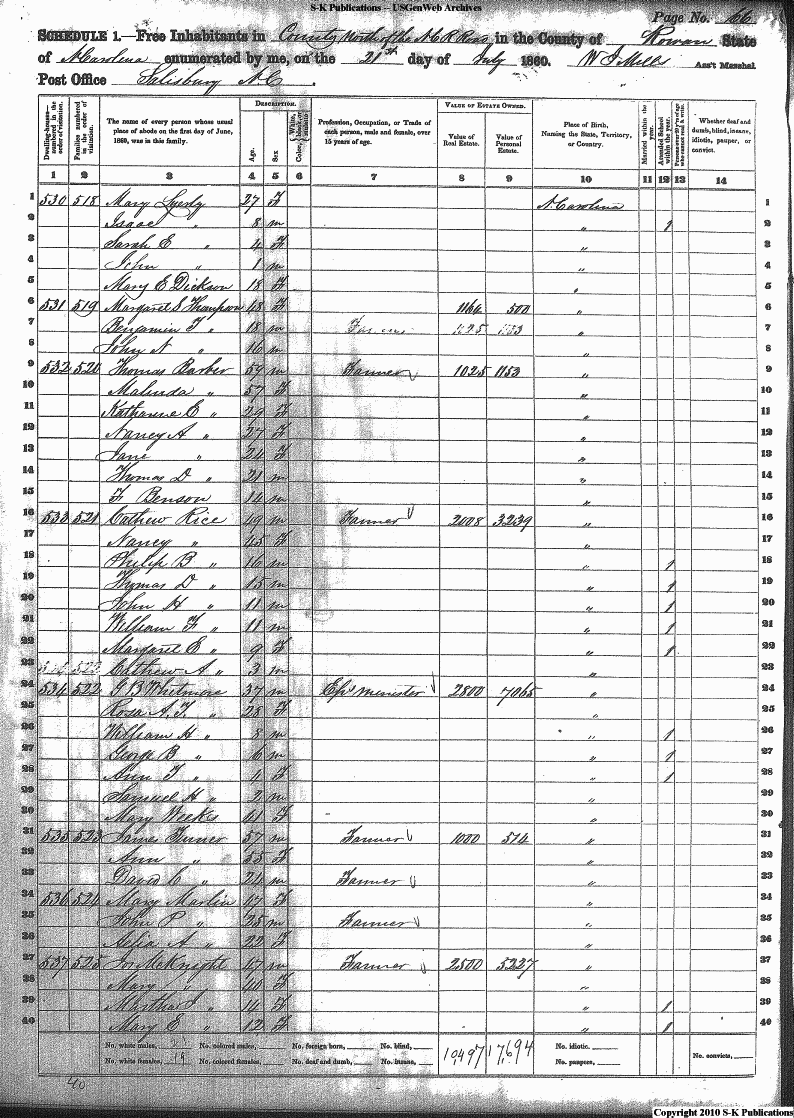 S-K Publications -- USGenWeb Archives
Page No. 66
SCHEDULE 1.—Free Inhabitants in County North of the N C R Road in the County of Rowan State
of N Carolina enumerated by me, on the 21st day of July 1860. W J Mills Ass't Marshal.
Post Office Salisbury N C.
Dwelling-houses—numbered in the order of visitation.
Families numbered in the order of visitation.
The name of every person whose usual place of abode on the first day of June, 1860, was in this family.
DESCRIPTION.
Age.
Sex.
Color, White, black, or mulatto
Profession, Occupation, or Trade of each person, male and female, over 15 years of age.
VALUE OF ESTATE OWNED.
Value of Real Estate.
Value of Personal Estate.
Place of Birth, Naming the State, Territory, or Country.
Married within the year.
Attended School within the year.
Persons over 20 y'rs of age who cannot read & write.
Whether deaf and dumb, blind, insane, idiotic, pauper, or convict.
1 2 3 4 5 6 7 8 9 10 11 12 13 14
1 530 518 Mary Lyerly 27 F N. Carolina 1
2 Isaac " 8 m " 1 2
3 Sarah E " 4 F " 3
4 John " 1 m " 4
5 Mary E Dickson 18 F " 5
6 531 519 Margaret S Thompson 48 F 1164 500 " 6
7 Benjamin F " 18 m Farmer 1025 1153 " 7
8 John N " 16 m " 8
9 532 520 Thomas Barber 59 m Farmer 1025 1153 " 9
10 Malinda " 57 F " 10
11 Katharine E " 29 F " 11
12 Nancy A " 27 F " 12
13 Jane " 24 F " 13
14 Thomas D " 21 m " 14
15 F Benson 14 m " 15
16 533 521 Cathew Rice 49 m Farmer 2008 3239 " 16
17 Nancy " 45 F " 17
18 Philip B " 16 m " 1 18
19 Thomas D " 15 m " 1 19
20 John H " 11 m " 1 20
21 William F " 11 m " 1 21
22 Margaret E " 9 F " 1 22
23 534 522 Cathew A " 3 m " 23
24 534 522 G B Whitmore 37 m Eps minister 2800 7065 " 24
25 Rosa A. F. " 28 F " 25
26 William H " 8 m " 1 26
27 George B " 6 m " 1 27
28 Ann F " 4 F " 1 28
29 Samuel H " 2 m " 29
30 Mary Weekes 61 F " 30
31 535 523 James Turner 57 m Farmer 1000 574 " 31
32 Ann " 55 F " 32
33 David C " 24 m Farmer " 33
34 536 524 Mary Marlin 17 F " 34
35 John P " 25 m Farmer " 35
36 A " 22 F " 36
37 537 525 Jos McKnight 47 m Farmer 2500 5227 " 37
38 Mary " 40 F " 38
39 Martha J " 14 F " 1 39
40 Mary E " 12 F " 1 40
No. white males, 21 No. colored males, No. foreign born, No. blind, 10,497 17,694 No. idiotic,
No. white females, 19 No. colored females, No. deaf and dumb, No. insane, No. paupers, No. convicts,
40
Copyright 2010 S-K Publications